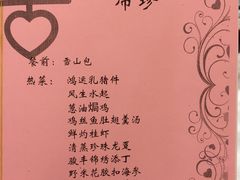 席珍
餐前：雪山包
热菜：鸿运乳猪件
风生水起
葱油焗鸡
鸡丝鱼肚翅羹汤
鲜灼桂虾
清蒸珍珠龙趸
骏丰锦绣添丁
野米花胶扣海参